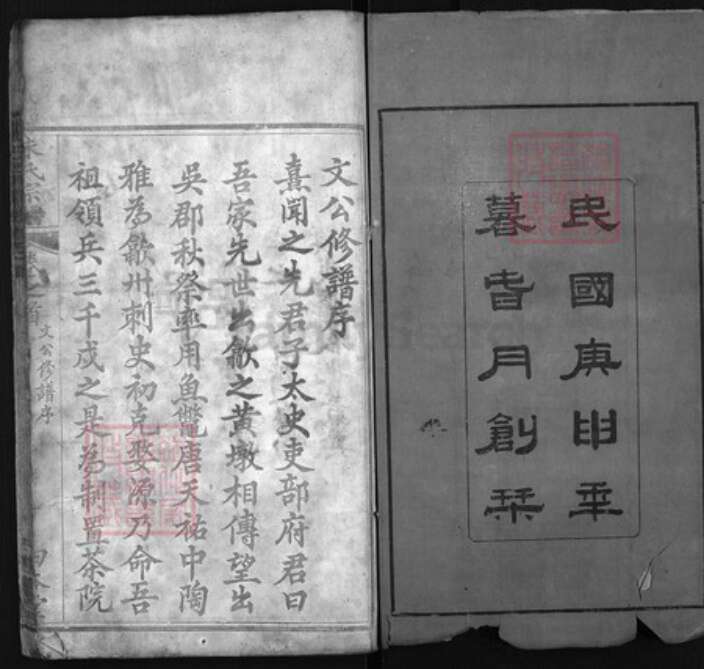 民國庚申年
暮春月創栞
文公修譜序
熹聞之先君子太史吏部府君曰
吾家先世出歙之黃墩相傳望出
吳郡秋祭率用魚鼈唐天祐中陶
雅為歙州刺史初克婺源乃命吾
祖領兵三千戍之是為制置茶院
朱氏宗譜
文公修譜序